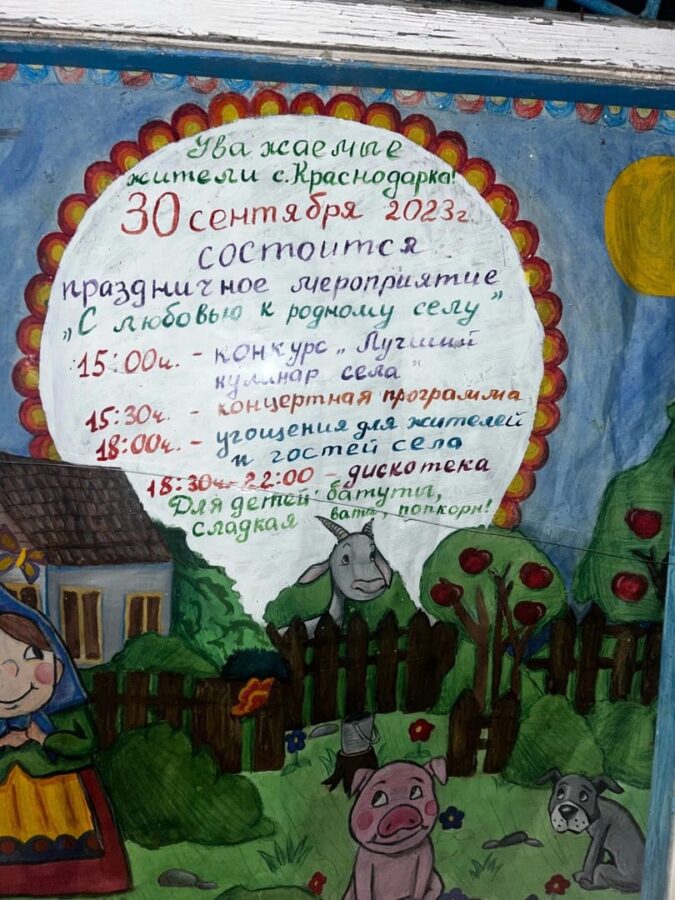 Уважаемые
жители с. Краснодарка!
30 сентября 2023г.
состоится
праздничное мероприятие
„С любовью к родному селу"
15:00ч. - конкурс „Лучший
кулинар села"
15:30ч. - концертная программа
18:00ч. - угощения для жителей
и гостей села
18:30ч-22:00 - дискотека
Для детей: батуты,
сладкая вата, попкорн!